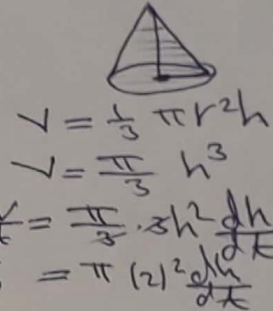 V = 1/3 πr²h
V = π/3 h³
= π/3 · 3h² dh/dt
= π (2)² dh/dt